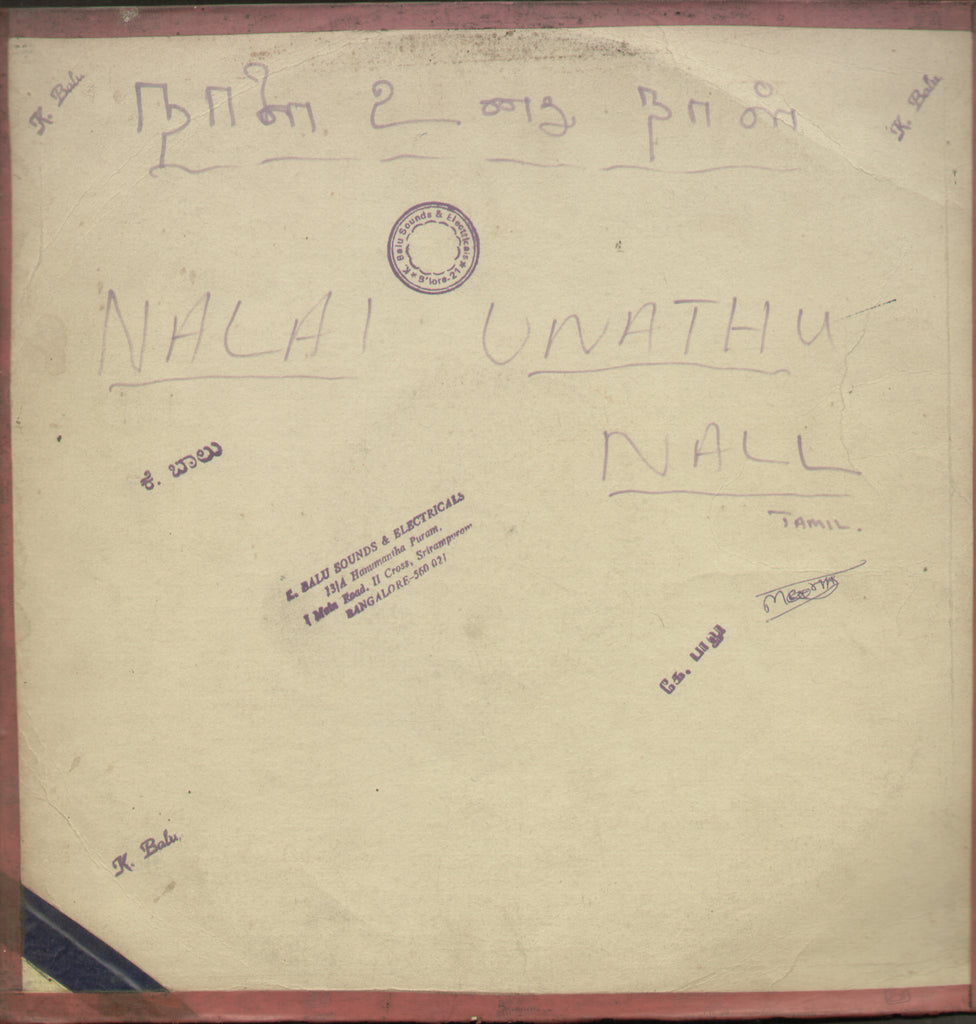 K. Balu
K. Balu
நாளை உனது நாள்
K. Balu Sounds & Electricals
* B'lore-21 *
NALAI UNATHU
NALL
TAMIL.
ಕೆ. ಬಾಲು
K. BALU SOUNDS & ELECTRICALS
13/A Hanumantha Puram,
I Main Road, II Cross, Srirampuram
BANGALORE-560 021
கே. பாலு
K. Balu